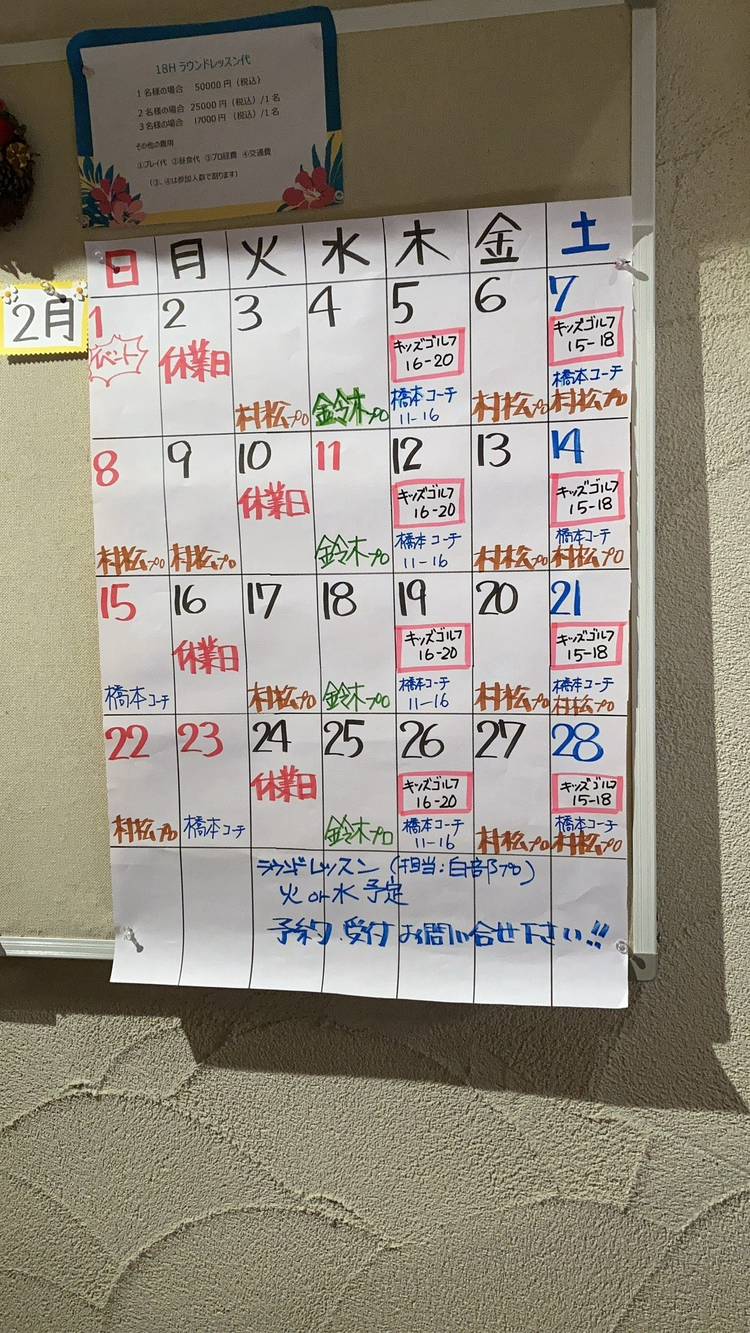 18H ラウンドレッスン代
1名様の場合 50000円（税込）
2名様の場合 25000円（税込）/1名
3名様の場合 17000円（税込）/1名
その他の費用
①プレイ代 ②昼食代 ③プロ経費 ④交通費
（③、④は参加人数で割ります）
2月
日 月 火 水 木 金 土
1 2 3 4 5 6 7
イベント 休業日 キッズゴルフ キッズゴルフ
16-20 15-18
村松プロ 鈴木プロ 橋本コーチ 村松プロ 橋本コーチ
11-16 村松プロ
8 9 10 11 12 13 14
休業日 キッズゴルフ キッズゴルフ
16-20 15-18
村松プロ 村松プロ 鈴木プロ 橋本コーチ 村松プロ 橋本コーチ
11-16 村松プロ
15 16 17 18 19 20 21
休業日 キッズゴルフ キッズゴルフ
16-20 15-18
橋本コーチ 村松プロ 鈴木プロ 橋本コーチ 村松プロ 橋本コーチ
11-16 村松プロ
22 23 24 25 26 27 28
休業日 キッズゴルフ キッズゴルフ
16-20 15-18
村松プロ 橋本コーチ 鈴木プロ 橋本コーチ 村松プロ 橋本コーチ
11-16 村松プロ
ラウンドレッスン（担当：白部プロ）
火 or 水 予定
予約受付 お問い合せ下さい!!